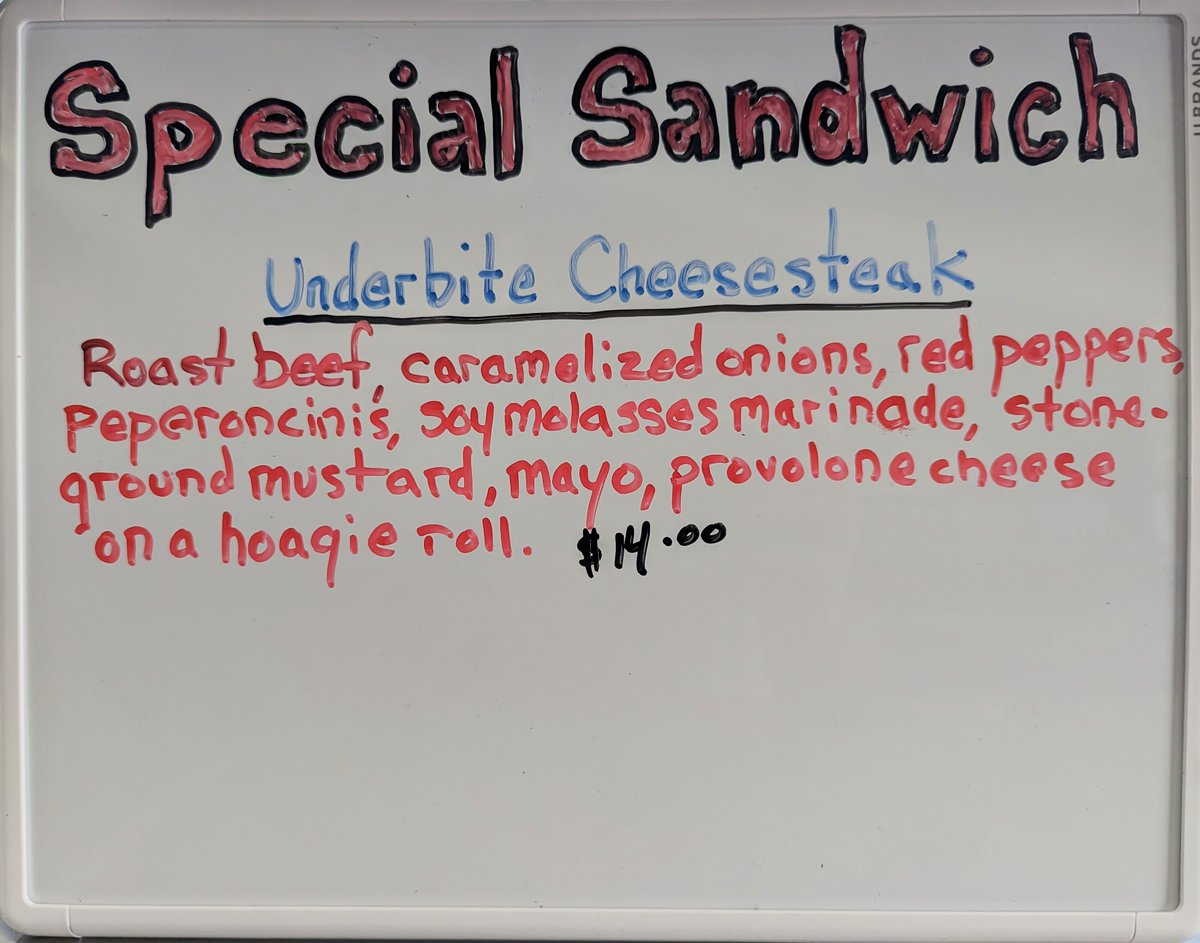 Special Sandwich
Underbite Cheesesteak
Roast beef, caramelized onions, red peppers,
Peperoncini's, soy molasses marinade, stone-
ground mustard, mayo, provolone cheese
on a hoagie roll. $14.00
U BRANDS